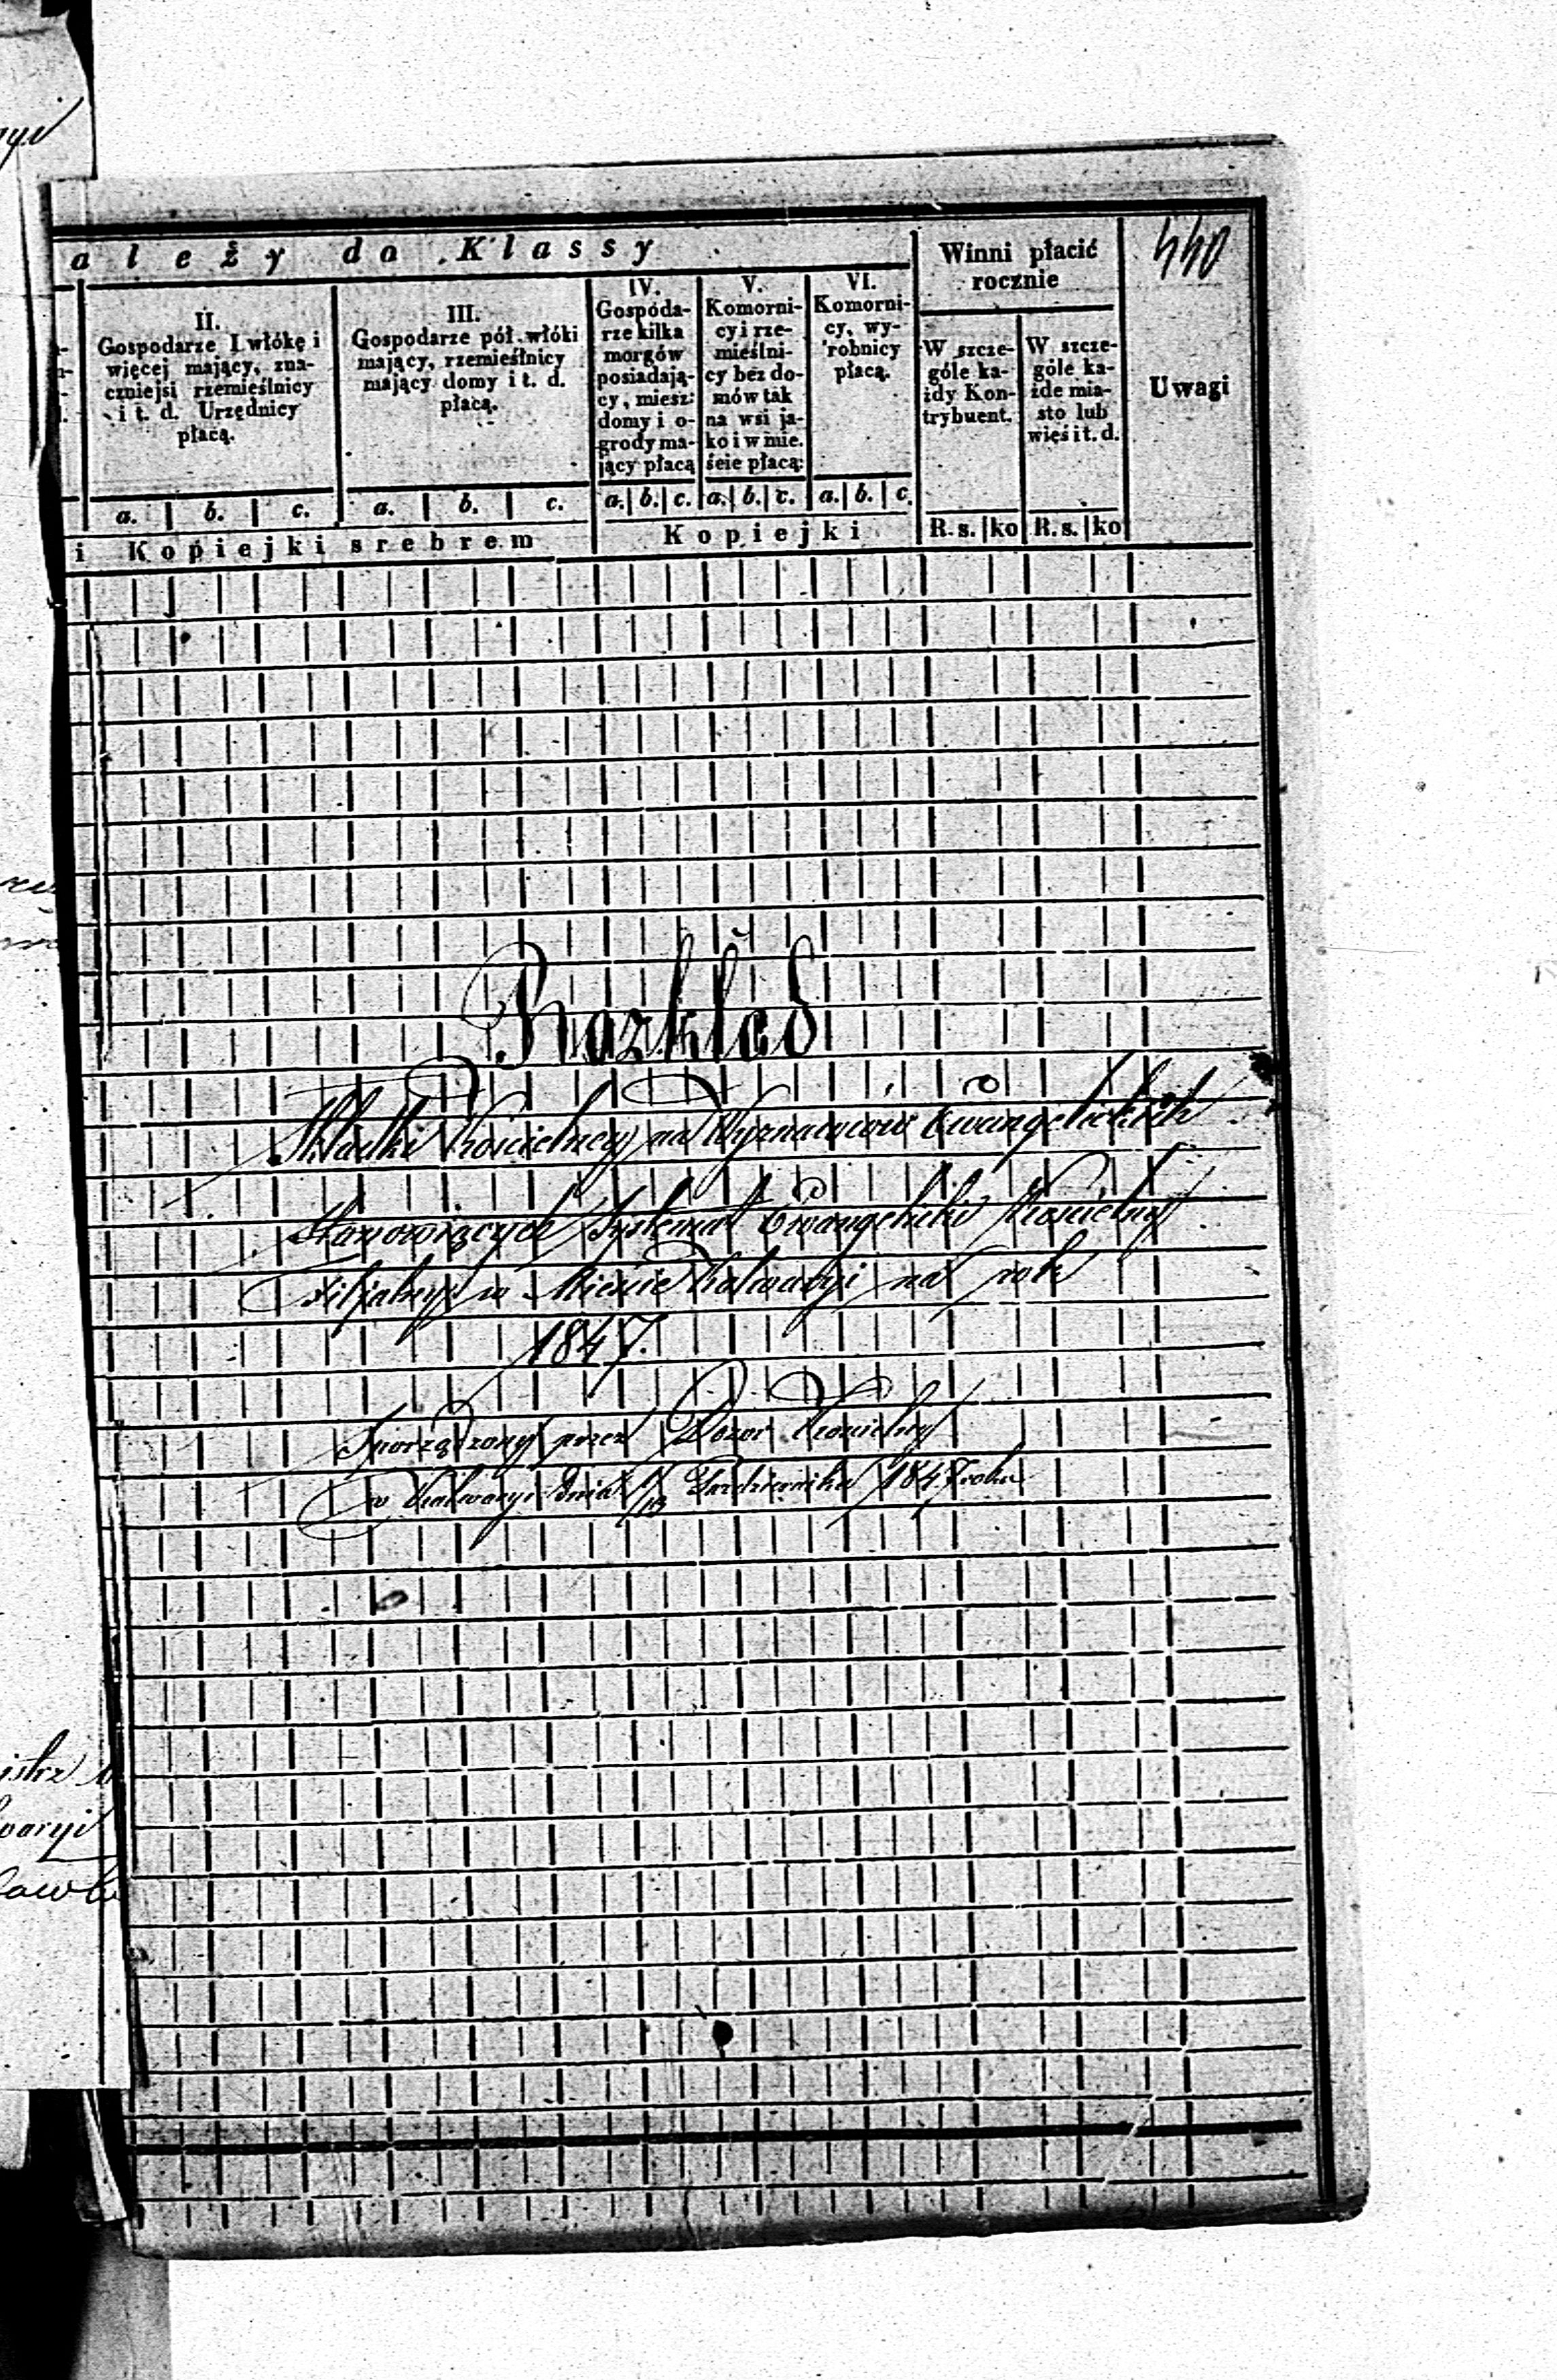 ależy do Klassy
Winni płacić
rocznie
440
II.
Gospodarze I włókę i
więcej mający, zna-
czniejsi rzemieślnicy
i t. d. Urzędnicy
płacą.
III.
Gospodarze pół włóki
mający, rzemieślnicy
mający domy i t. d.
płacą.
IV.
Gospoda-
rze kilka
morgów
posiadają-
cy, miesz:
domy i o-
grody ma-
jący płacą
V.
Komorni-
cy i rze-
mieślni-
cy bez do-
mów tak
na wsi ja-
ko i w mie.
ście płacą:
VI.
Komorni-
cy, wy-
robnicy
płacą.
W szcze-
góle ka-
żdy Kon-
trybuent.
W szcze-
góle ka-
żde mia-
sto lub
wieś i t. d.
Uwagi
a. b. c. a. b. c. a. b. c. a. b. c. a. b. c.
i Kopiejki srebrem
Kopiejki
R. s. ko R. s. ko
Rozkład
Składki Kościelnej na Wyznawców Ewangelickich
Stanowiących Systemat Ewangelicki Kościelny
Filjalny w Mieście Kalwaryi na rok
1847.
Sporządzony przez Dozór Kościelny
w Kalwaryi dnia 1/13 Października 1847 roku